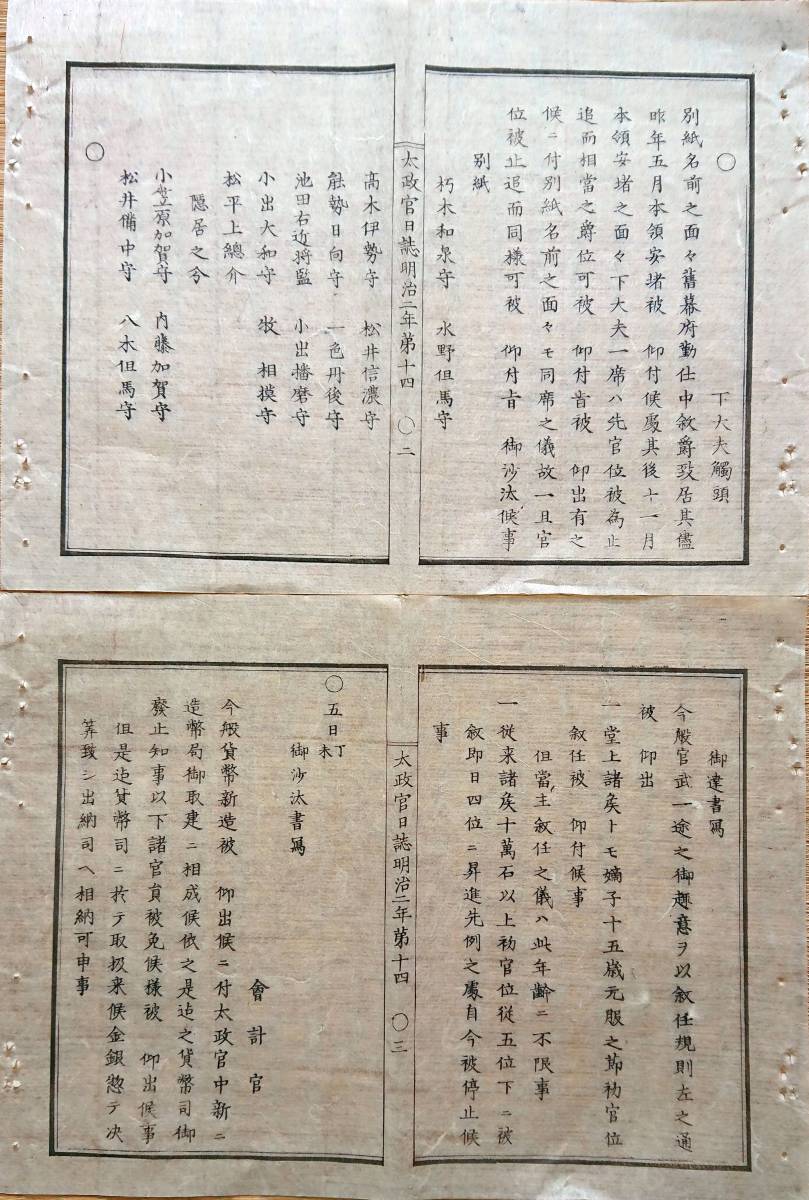 〇
下大夫觸頭
別紙名前之面々舊幕府勤仕中敘爵致居其儘
昨年五月本領安堵被 仰付候處其後十一月
本領安堵之面々下大夫一席ハ先官位被為止
追而相當之爵位可被 仰付旨被 仰出有之
候ニ付別紙名前之面々モ同席之儀故一旦官
位被止追而同様可被 仰付旨 御沙汰候事
別紙
朽木和泉守 水野但馬守
太政官日誌明治二年第十四 〇二
高木伊勢守 松井信濃守
能勢日向守 一色丹後守
池田右近将監 小出播磨守
小出大和守 牧 相摸守
松平上總介
隠居之分
小笠原加賀守 内藤加賀守
松井備中守 八木但馬守
〇
御達書寫
今般官武一途之御趣意ヲ以敘任規則左之通
被 仰出
一堂上諸矦トモ嫡子十五歳元服之節初官位
敘任被 仰付候事
但當主敘任之儀ハ此年齢ニ不限事
一従来諸矦十萬石以上初官位従五位下ニ被
敘即日四位ニ昇進先例之處自今被停止候
事
太政官日誌明治二年第十四 〇三
〇五日丁未
御沙汰書寫
會計官
今般貨幣新造被 仰出候ニ付太政官中新ニ
造幣局御取建ニ相成候依之是迠之貨幣司御
廢止知事以下諸官員被免候様被 仰出候事
但是迠貨幣司ニ於テ取扱来候金銀惣テ决
筭致シ出納司ヘ相納可申事